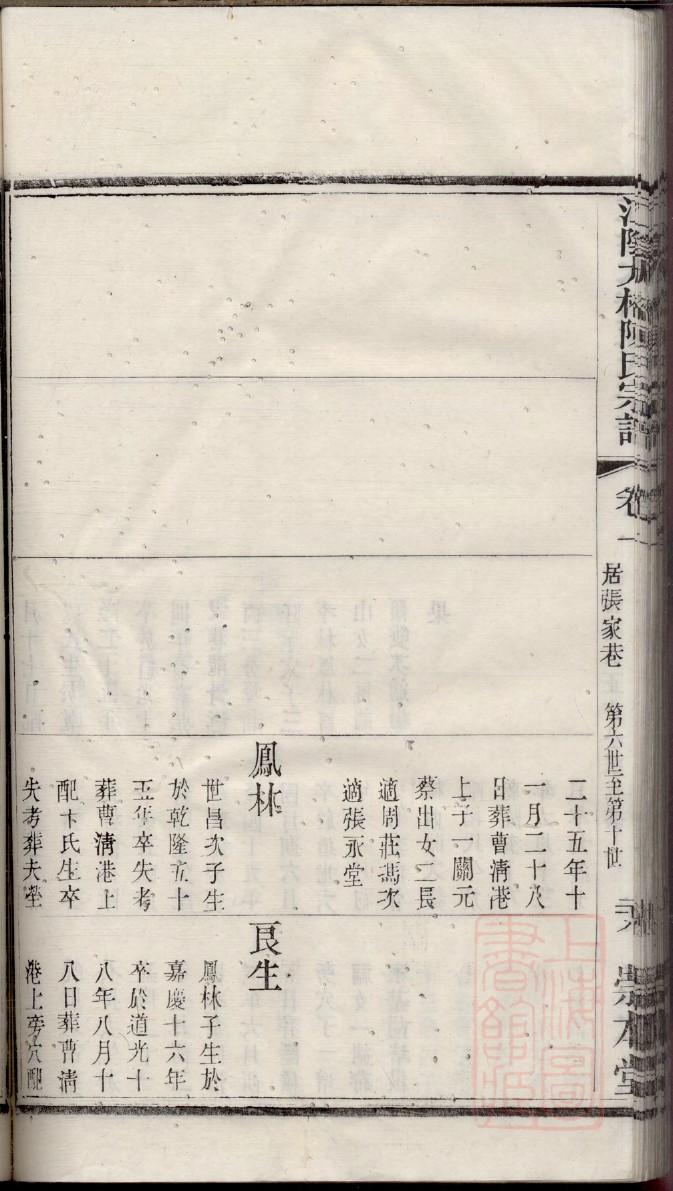 江陰九橋陳氏宗譜
卷一
居張家巷
第六世至第十世
崇本堂
二十五年十
一月二十八
日葬曹清港
上子一關元
蔡出女二長
適周莊馮次
適張永堂
鳳林
世昌次子生
於乾隆五十
五年卒失考
葬曹清港上
配卞氏生卒
失考葬夫塋
艮生
鳳林子生於
嘉慶十六年
卒於道光十
八年八月十
八日葬曹清
港上旁穴配
上海圖書館藏